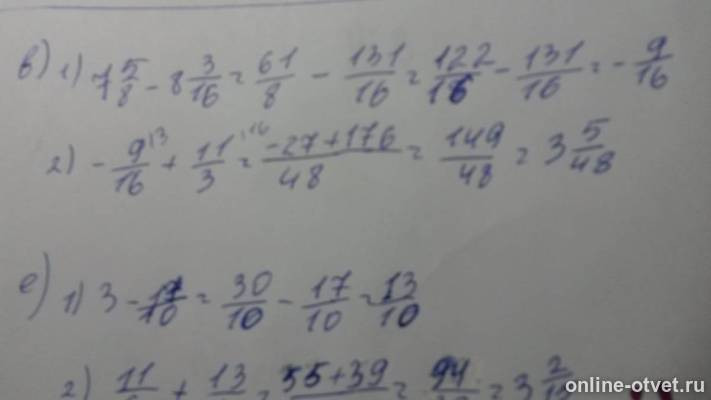 в) 1) 7 5/8 - 8 3/16 = 61/8 - 131/16 = 122/16 - 131/16 = - 9/16
2) - 9/16 + 11/3 = -27+176/48 = 149/48 = 3 5/48
е) 1) 3 - 17/10 = 30/10 - 17/10 = 13/10
2) 11 + 13 = 55+39 = 94 = 3 2
online-otvet.ru